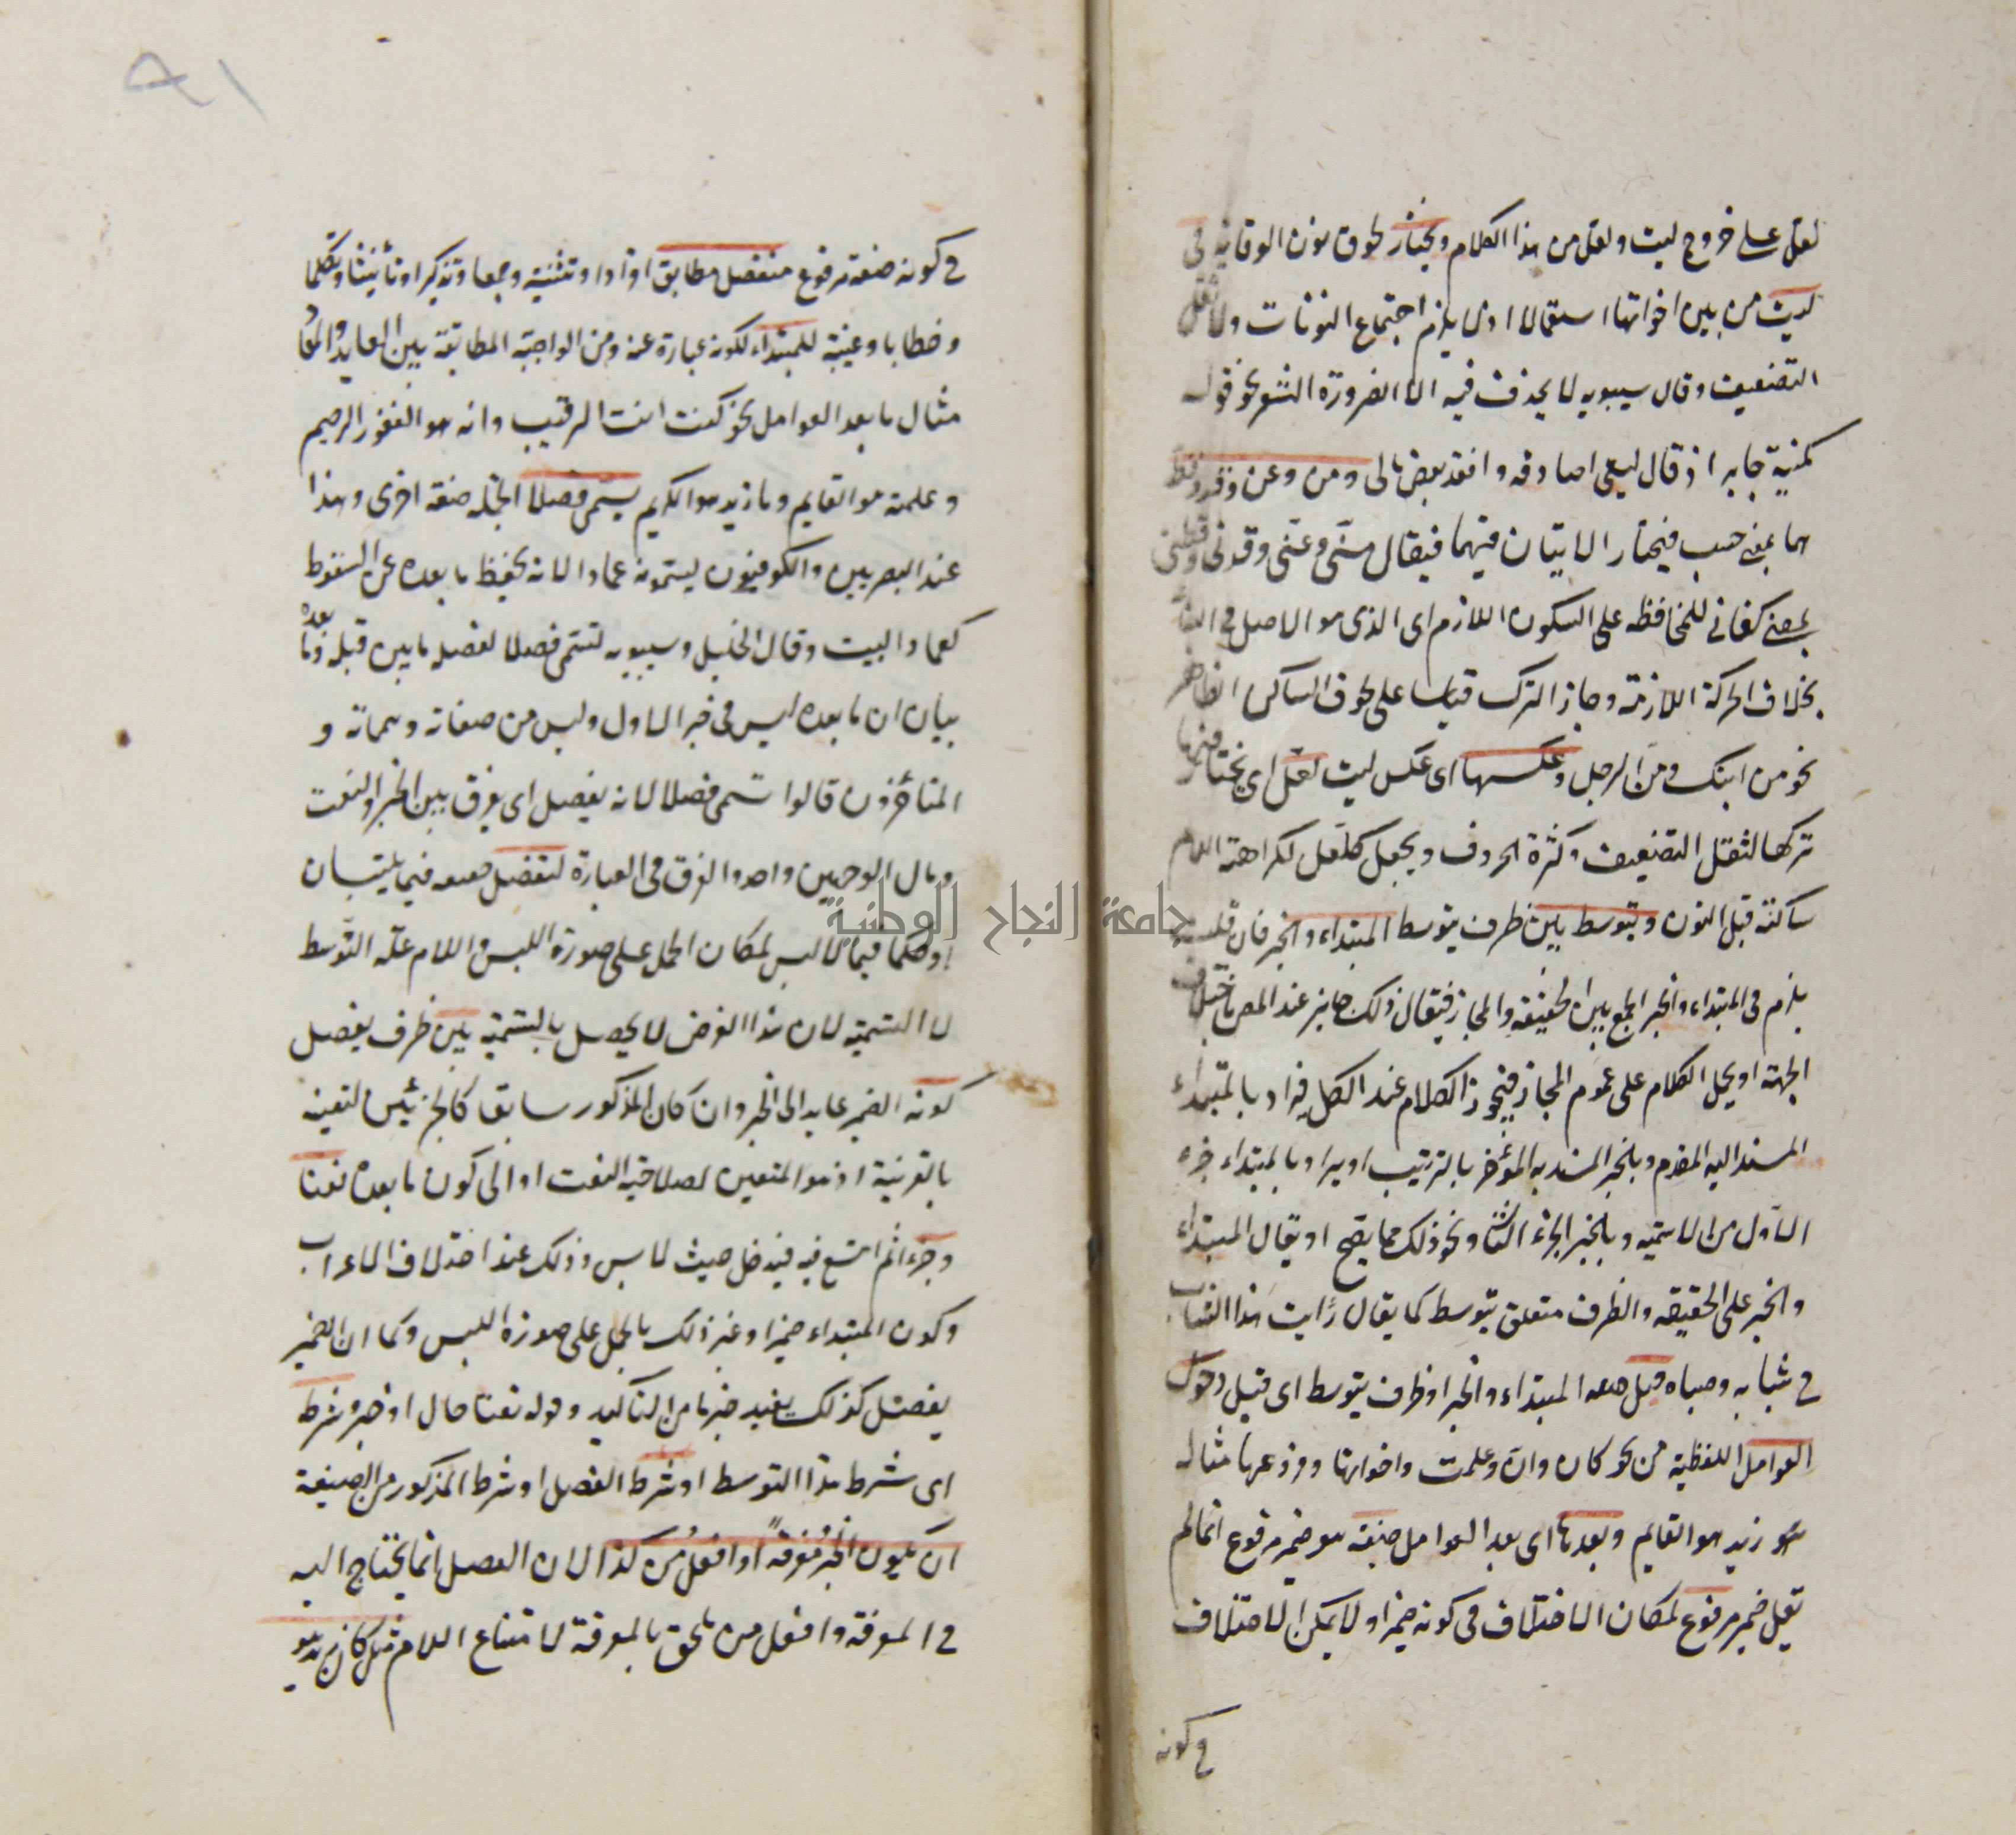 لعل على خروج ليت ولعل من هذا الكلام ويختار لحوق نون الوقاية في
ليت من بين اخواتها استعمالا اذ لا يلزم اجتماع النونات ولا ثقل
التضعيف وقال سيبويه لا يحذف فيه الا لضرورة الشعر نحو قوله
كمنية جابر اذ قال ليتي اصادفه وافقد بعض مالى ومن وعن وقد وقط
هما بمعنى حسب فيختار الاتيان فيهما فيقال منّى وعنّى وقدنى وقطنى
بمعنى كفانى للمحافظة على السكون اللازم اى الذى هو الاصل فى البناء
بخلاف الحركة اللازمة وجاز الترك قياسا على لحوق الساكن الظاهر
نحو من ابنك ومن الرجل وعكسها اى عكس ليت لعل اى يختار فيها
تركها لثقل التضعيف وكثرة الحروف ويجعل كلعل لكراهة اللام
ساكنة قبل النون ويتوسط بين ظرف يتوسط المبتداء والخبر فان قلت
يلزم فى المبتداء والخبر الجمع بين الحقيقة والمجاز فيقال ذلك جايز عند المص باختلاف
الجهة او يحمل الكلام على عموم المجاز فيجوز الكلام عند الكل فيراد بالمبتداء
المسند اليه المقدم وبالخبر المسند به المؤخر بالترتيب او يراد بالمبتداء جزء
الاول من الاسمية وبالخبر الجزء الثانى ونحو ذلك مما يصح او يقال المبتداء
والخبر على الحقيقة والظرف متعلق بتوسط كما يقال رايت هذا الشاب
فى شبابه وصباه قبل صفة المبتداء والخبر او ظرف يتوسط اى قبل دخول
العوامل اللفظية من نحو كان وان وعلمت واخواتها وفروعها مثاله
نحو زيد هو القايم وبعدها اى بعد العوامل صيغة هو ضمير مرفوع انما لم
يقل ضمير مرفوع لمكان الاختلاف فى كونه ضميرا ولا يمكن الاختلاف
فى كونه
٩١
فى كونه صيغة مرفوع منفصل مطابق افرادا وتثنية وجمعا وتذكيرا وتأنيثا وتكلما
وخطابا وغيبة للمبتداء لكونه عبارة عنه ومن الواجبة المطابقة بين العايد والمعاد
مثال ما بعد العوامل نحو كنت انت الرقيب وانه هو الغفور الرحيم
وعلمته هو القايم وما زيد هو الكريم يسمى فصلا الجملة صفة اخرى وهذا
عند البصريين والكوفيون يسمونه عمادا لانه يحفظ ما بعده عن السقوط
كعماد البيت وقال الخليل وسيبويه لتسمى فصلا لفصله ما بين قبله وما بعده
ببيان ان ما بعده ليس فى خبر الاول وليس من صفاته وسماته و
المتأخرون قالوا تسمى فصلا لانه يفصل اى يفرق بين الخبر والنعت
ومال الوجهين واحد والفرق فى العبارة لتفصل فيما يلتبسان
وحكما فيما لا لبس لمكان الحمل على صورة اللبس واللام علة التوسط
لا التسمية لان هذا الغرض لا يحصل بالتسمية بين ظرف يفصل
كونه الضمير عايد الى الخبر وان كان المذكور سابقا كالجزئين لتعينه
بالقرينة اذ هو المتعين لصلاحية النعت او الى كون ما بعده نعتا
وخبرا ثم اتسع فيه فيدخل حيث لا لبس وذلك عند اختلاف الاعراب
وكون المبتداء ضميرا وغير ذلك بالحمل على صورة اللبس وكما ان الضمير
يفصل كذلك يفيد ضربا من التأكيد وقوله نعتا حال او خبر وشرط
اى شرط هذا التوسط او شرط الفصل او شرط المذكور من الصيغة
ان يكون الخبر معرفة او افعل من كذا لان الفصل انما يحتاج اليه
فى المعرفة وافعل من ملحق بالمعرفة لامتناع اللام مثل كان زيد هو
جامعة النجاح الوطنية